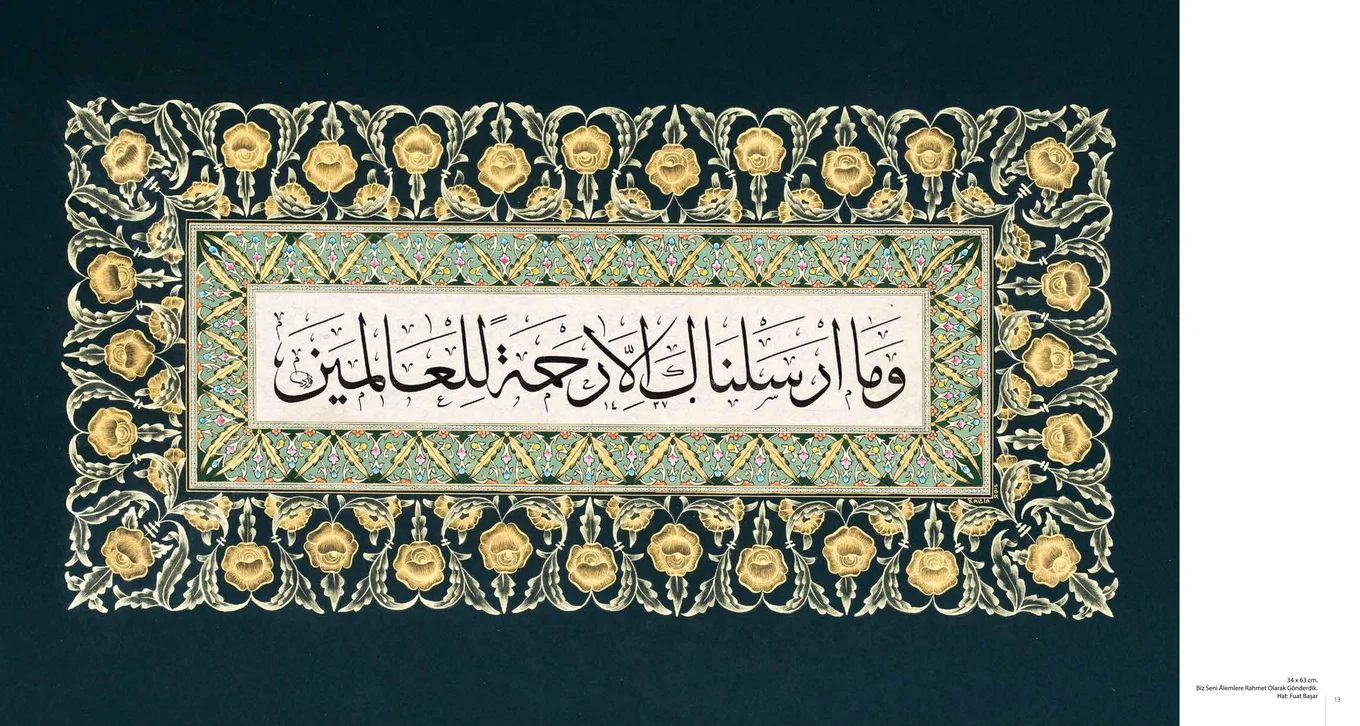 وما ارسلناك الا رحمة للعالمين
١٤٣٧
RABİA 2016
34 x 63 cm.
Biz Seni Âlemlere Rahmet Olarak Gönderdik.
Hat: Fuat Başar
13